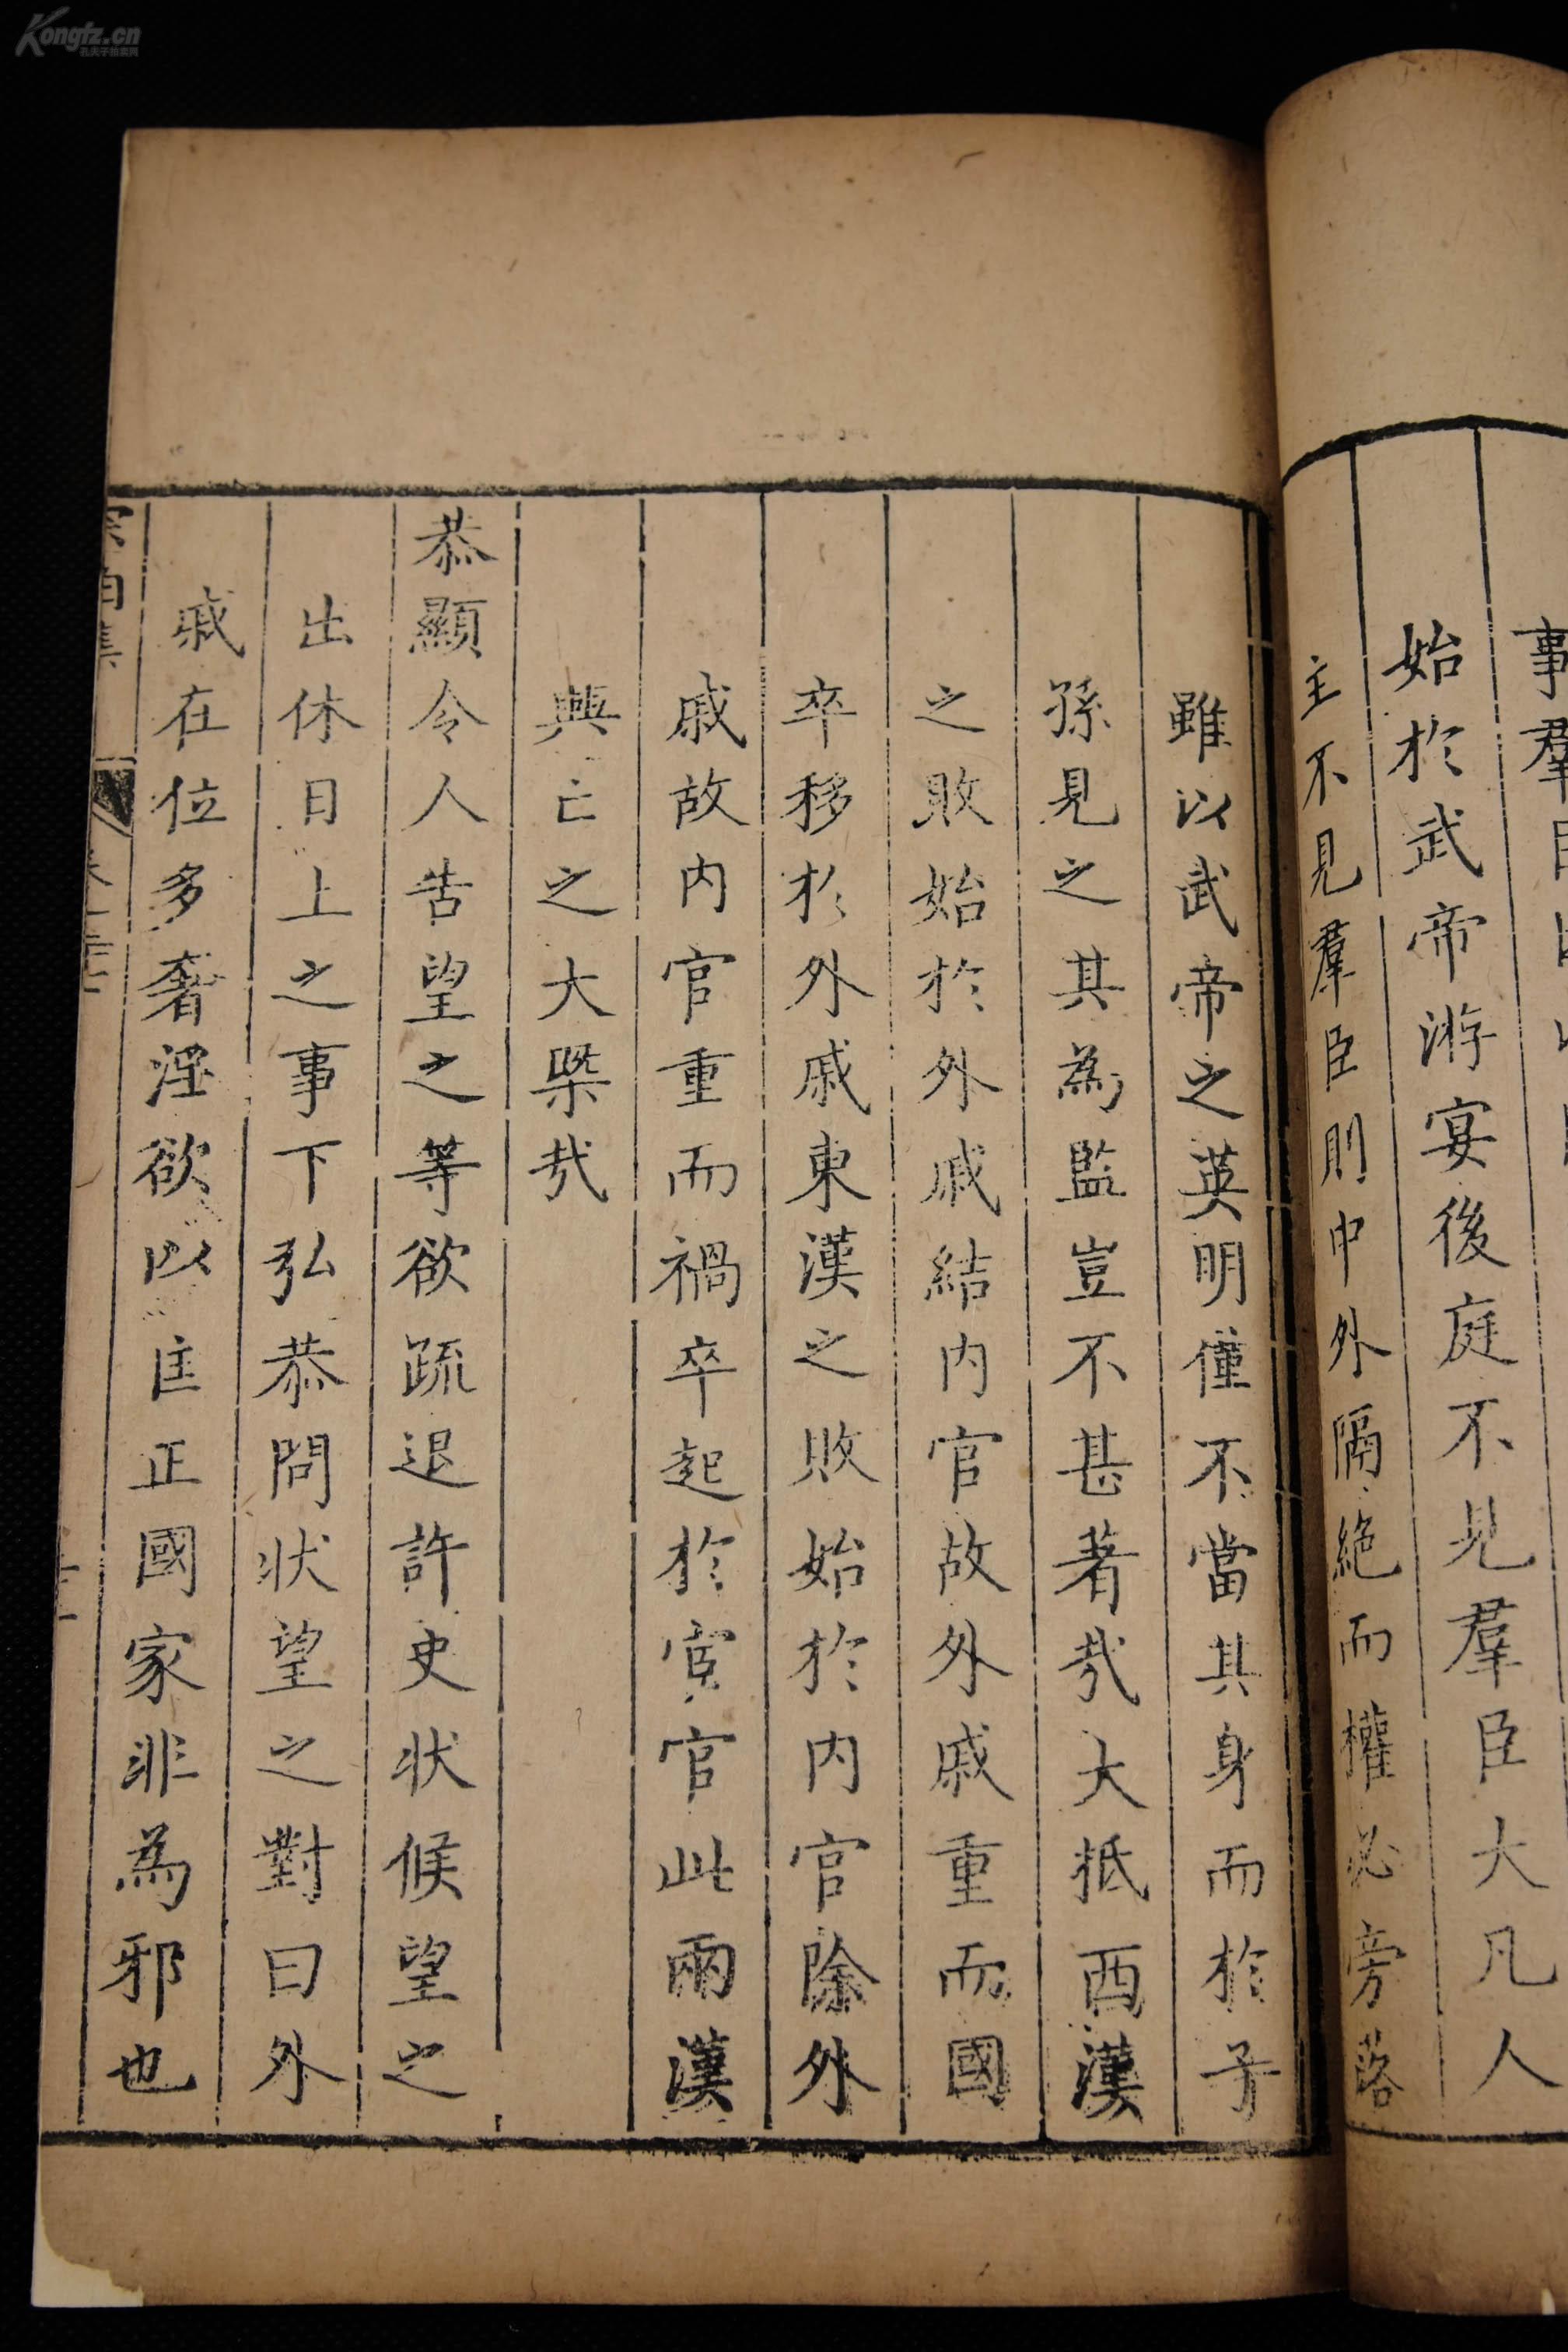 Kongfz.cn
孔夫子拍卖网
始於武帝游宴後庭不見羣臣大凡人
主不見羣臣則中外隔絶而權必旁落
雖以武帝之英明僅不當其身而於子
孫見之其為監豈不甚著㢤大抵西漢
之敗始於外戚結内官故外戚重而國
卒移於外戚東漢之敗始於内官除外
戚故内官重而禍卒起於宦官此兩漢
興亡之大槩㢤
恭顯令人告望之等欲疏退許史状候望之
出休日上之事下弘恭問状望之對曰外
戚在位多奢淫欲以匡正國家非為邪也